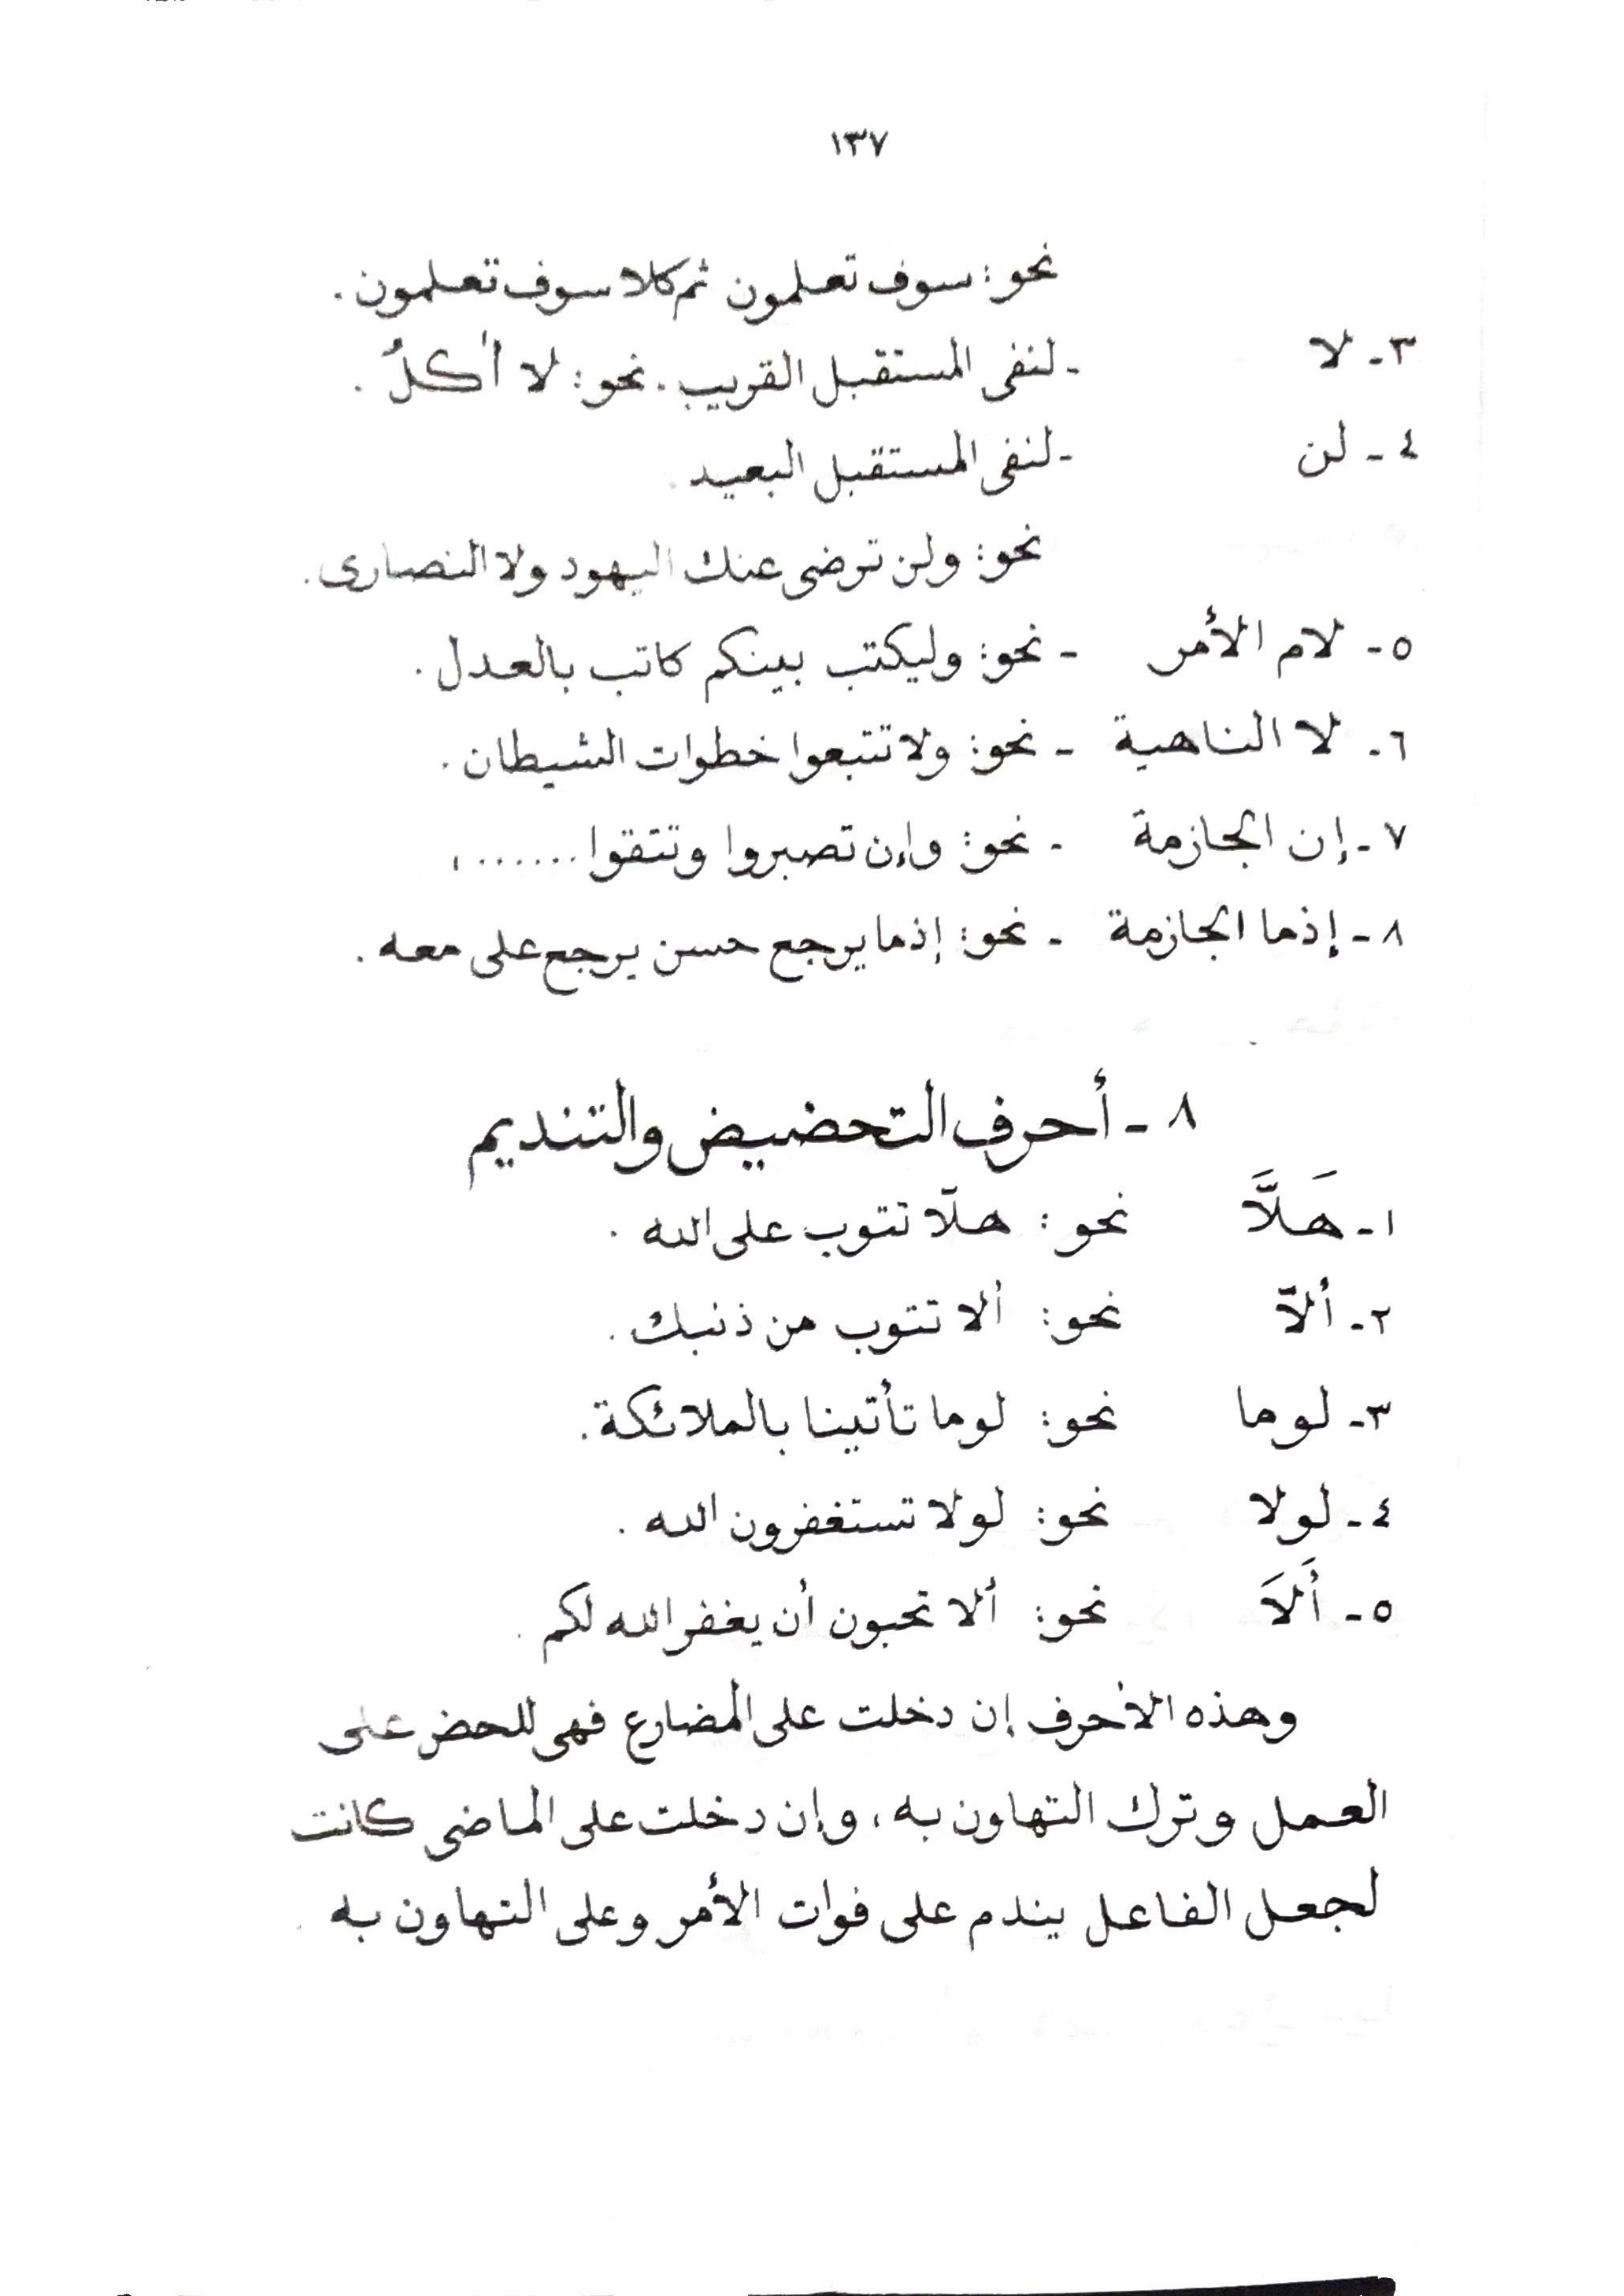 ١٣٧
نحو: سوف تعلمون ثم كلا سوف تعلمون.
٣- لا - لنفى المستقبل القريب. نحو: لا أكلُ.
٤- لن - لنفى المستقبل البعيد.
نحو: ولن ترضى عنك اليهود ولا النصارى.
٥- لام الأمر - نحو: وليكتب بينكم كاتب بالعدل.
٦- لا الناهية - نحو: ولا تتبعوا خطوات الشيطان.
٧- إن الجازمة - نحو: وإن تصبروا وتتقوا .......
٨- إذما الجازمة - نحو: إذما يرجع حسن يرجع على معه.
٨- أحرف التحضيض والتنديم
١- هَلاَّ نحو: هلاّ تتوب على الله.
٢- ألاّ نحو: ألا تتوب من ذنبك.
٣- لوما نحو: لوما تأتينا بالملائكة.
٤- لولا نحو: لولا تستغفرون الله.
٥- أَلاَ نحو: ألا تحبون أن يغفر الله لكم.
وهذه الأحرف إن دخلت على المضارع فهى للحض على
العمل وترك التهاون به، وإن دخلت على الماضى كانت
لجعل الفاعل يندم على فوات الأمر وعلى التهاون به